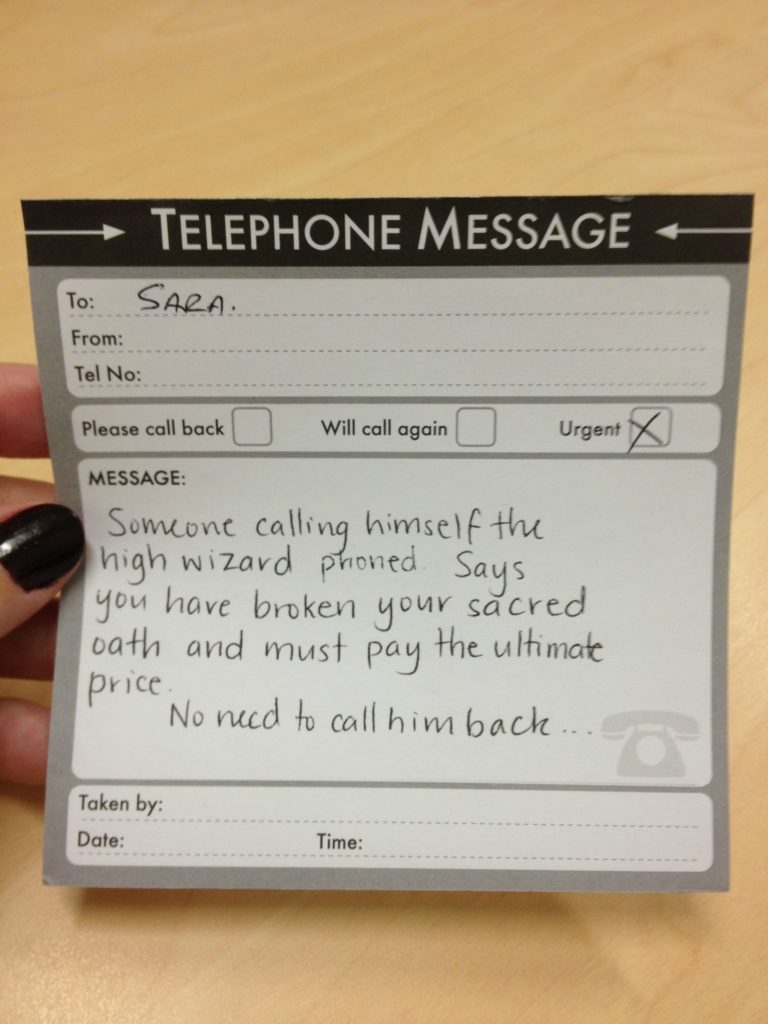 TELEPHONE MESSAGE
To: SARA.
From:
Tel No:
Please call back Will call again Urgent
MESSAGE:
Someone calling himself the
high wizard phoned. Says
you have broken your sacred
oath and must pay the ultimate
price.
No need to call him back...
Taken by:
Date: Time: